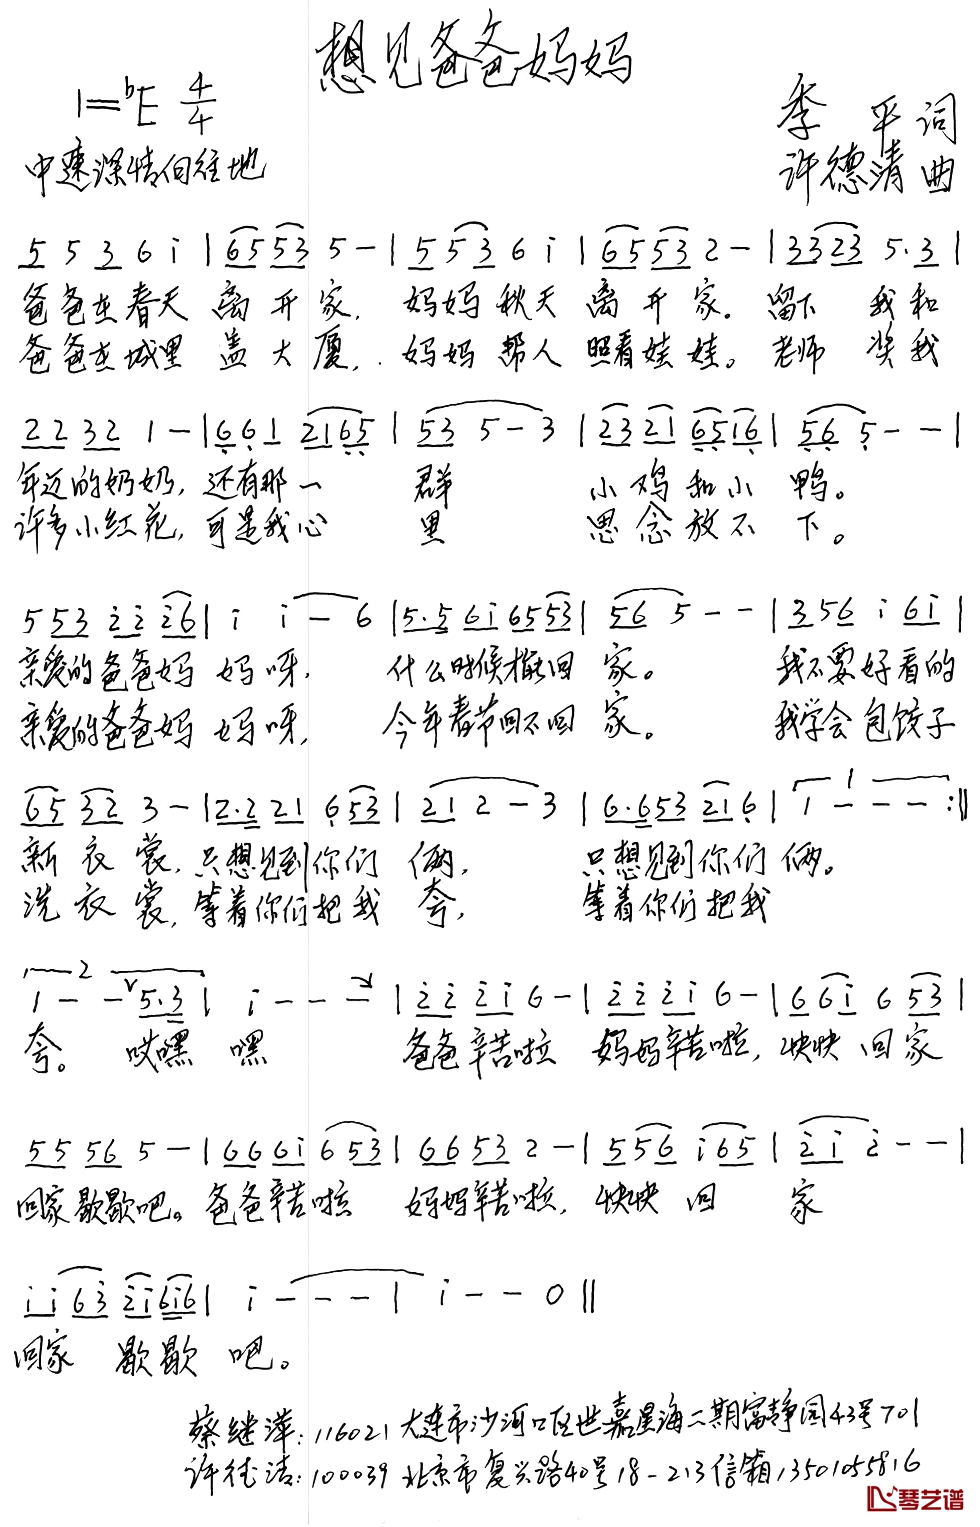 想见爸爸妈妈
1=♭E 4/4
季 平 词
中速深情向往地
许德清 曲
5 5 3 6 i | 6553 5 - | 5 53 6 i | 6553 2 - | 3323 5·3 |
爸爸在春天 离开家, 妈妈秋天 离开家. 留下 我和
爸爸在城里 盖大厦, 妈妈帮人 照看娃娃。老师 奖我
22 32 1 - | 6 6 1 2165 | 53 5 - 3 | 23 21 6516 | 56 5 - - |
年迈的奶奶, 还有那一 群 小鸡和小 鸭。
许多小红花, 可是我心 里 思念放不 下。
5 53 i i i6 | i i - 6 | 5·5 6i 6553 | 56 5 - - | 3 56 i 6i |
亲爱的爸爸妈 妈呀, 什么时候才能回 家。 我不要好看的
亲爱的爸爸妈 妈呀, 今年春节回不回 家。 我学会包饺子
65 32 3 - | 2·2 21 6 53 | 21 2 - 3 | 6·653 216 | 1 - - - :||
新衣裳, 只想见到你们 俩, 只想见到你们 俩。
洗衣裳, 等着你们把我 夸, 等着你们把我
1 - - 5·3 | i - - - | 2 2 2 i 6 - | 2 2 2 i 6 - | 6 6i 6 53 |
夸。 哎嘿 嘿 爸爸辛苦啦 妈妈辛苦啦, 快快 回家
55 56 5 - | 66 6i 6 53 | 66 53 2 - | 5 56 i65 | 2 i 2 - - |
回家歇歇吧。爸爸辛苦啦 妈妈辛苦啦, 快快 回 家
i i 63 2i 6i6 | i - - - | i - - 0 ||
回家 歇歇 吧。
蔡继萍: 116021 大连市沙河口区世嘉星海二期富静园43号701
许德清: 100039 北京市复兴路40号18-213信箱13501055816
琴艺谱